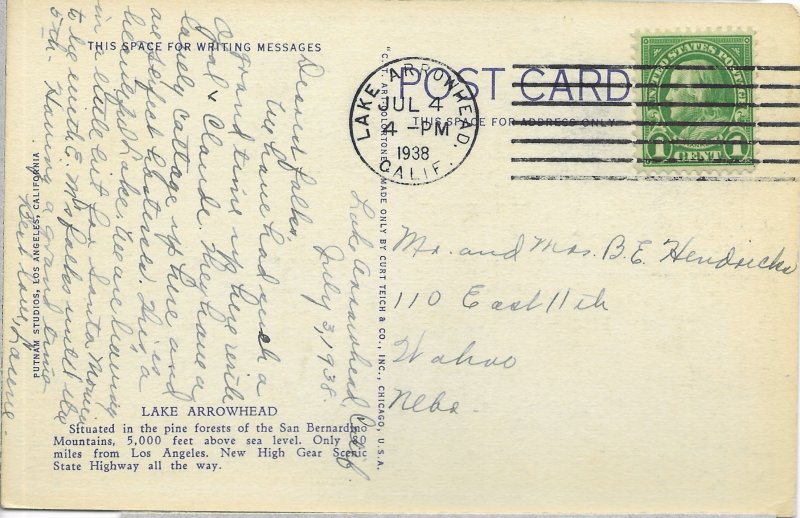 THIS SPACE FOR WRITING MESSAGES
POST CARD
THIS SPACE FOR ADDRESS ONLY
LAKE ARROWHEAD,
JUL 4
4 -PM
1938
CALIF.
UNITED STATES POSTAGE
1 CENT 1
Lake Arrowhead, Calif.
July 3, 1938.
Dearest folks,
We have had such a
grand time up here with
Opal & Claude. They have a
lovely cottage up here and
are perfect hostesses. This is a
beautiful lake. We are leaving
in a little bit for Santa Monica
to be with E. M's folks until the
5th. Having a grand time
Best love,
Mr. and Mrs. B. E. Hendricks
110 East 11th
Wahoo
Nebr.
"C.T. ART-COLORTONE" MADE ONLY BY CURT TEICH & CO., INC., CHICAGO, U.S.A.
PUTNAM STUDIOS, LOS ANGELES, CALIFORNIA
LAKE ARROWHEAD
Situated in the pine forests of the San Bernardino
Mountains, 5,000 feet above sea level. Only
miles from Los Angeles. New High Gear Scenic
State Highway all the way.